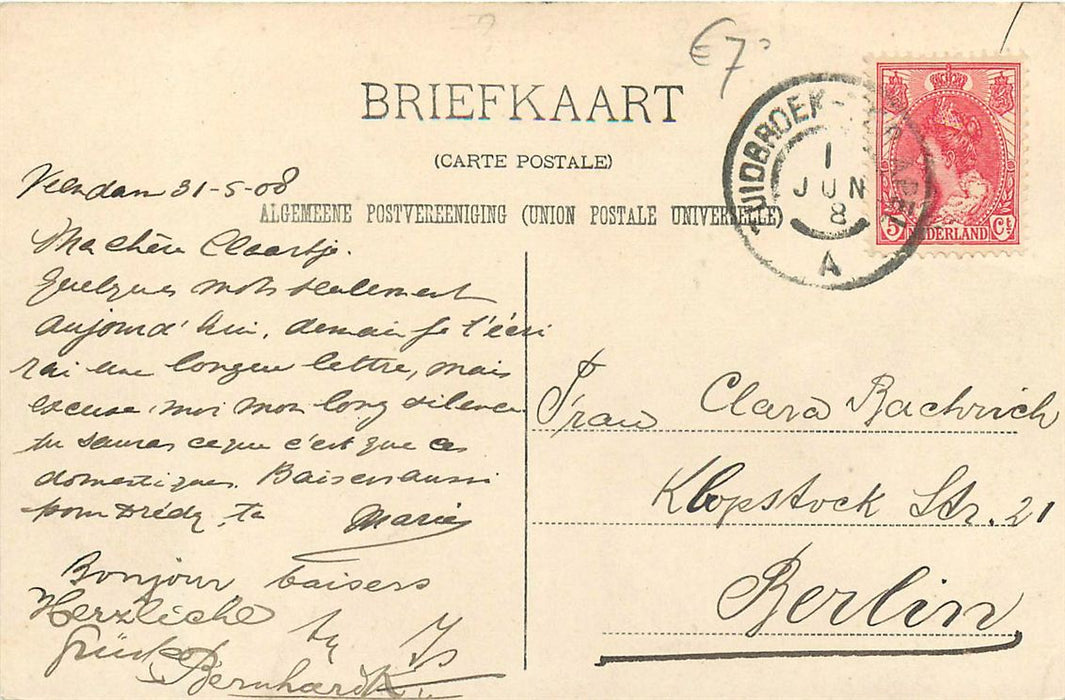 €7
BRIEFKAART
(CARTE POSTALE)
ALGEMEENE POSTVEREENIGING (UNION POSTALE UNIVERSELLE)
ZUIDBROEK-TER APEL
1
JUN
8
A
5 NEDERLAND Ct
Veendam 31-5-08
Ma chère Claartje.
Quelques mots seulement
aujourd'hui, demain je t'écri
rai une longue lettre, mais
excuse moi mon long silence
tu sauras ce que c'est que ces
domestiques. Baisers aussi
pour Frédy, ta Marie
Bonjour, baisers
Herzliche
Grüsse
Bernhard
Frau Clara Bachrich
Klopstock Str. 21
Berlin